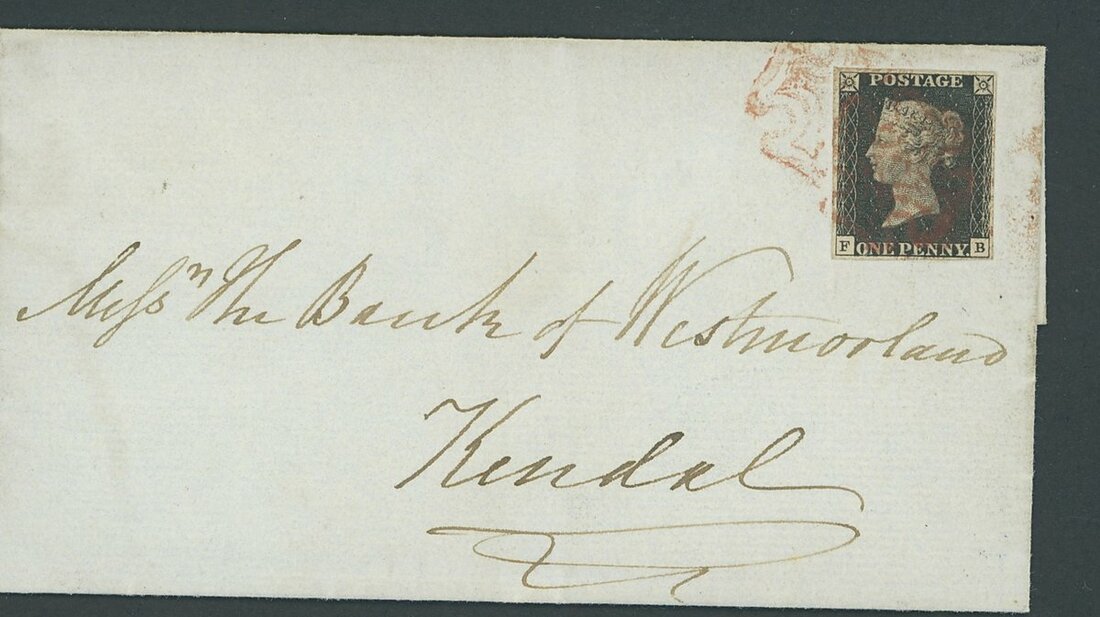 POSTAGE
F ONE PENNY. B
Messrs The Bank of Westmorland
Kendal